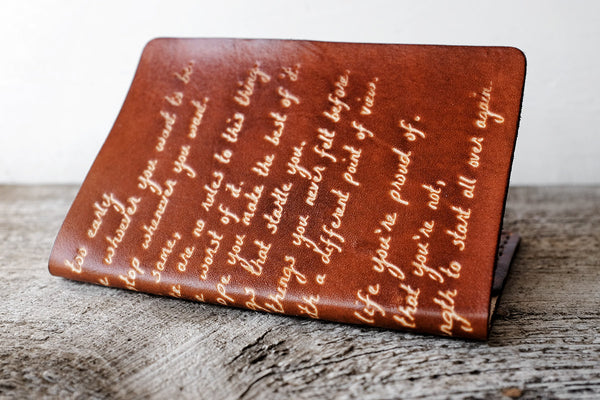 too early
whoever you want to be.
op whenever you want.
same,
are no rules to this thing.
worst of it.
pe you make the best of it.
gs that startle you.
things you never felt before
th a different point of view.
life you're proud of.
that you're not,
ngth to start all over again.